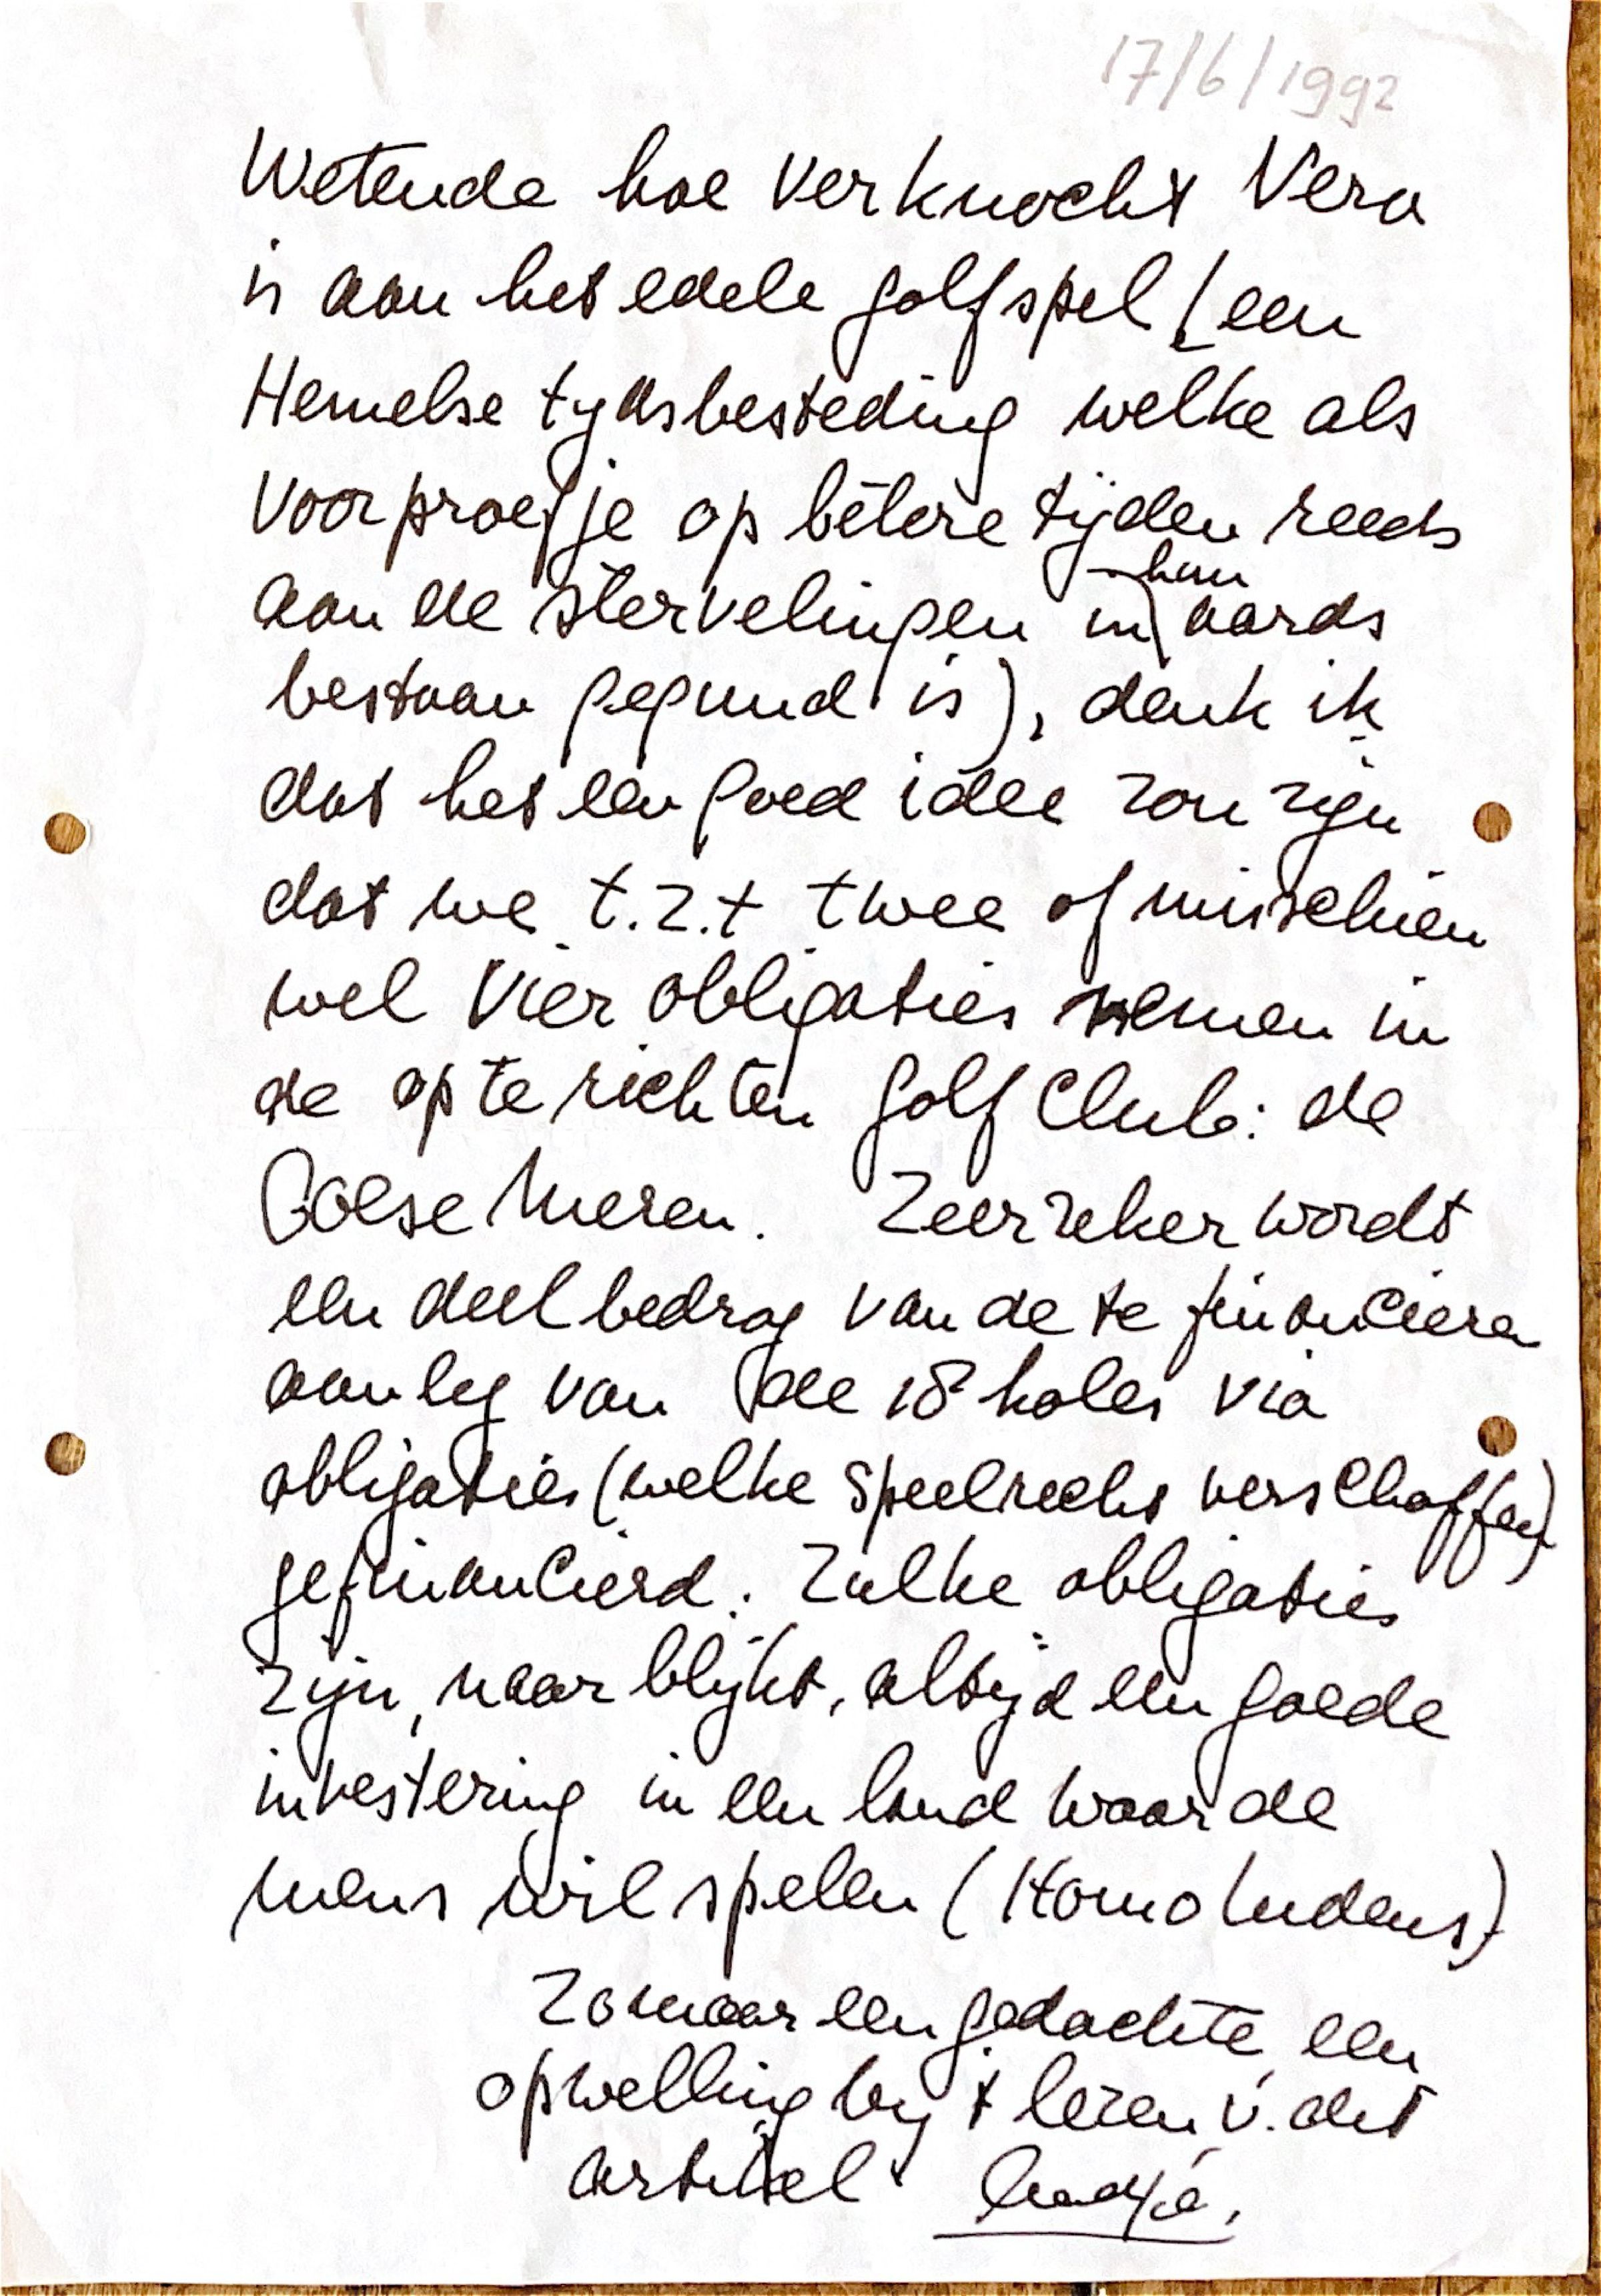 17/6/1992
Wetende hoe verknocht Vera
is aan het edele golfspel (een
Hemelse tydsbesteding welke als
voorproefje op bétere tijden reeds
hun
aan de stervelingen in aards
bestaan gegund is), denk ik
dat het een goed idee zou zijn
dat we t.z.t twee of misschien
wel vier obligaties nemen in
de op te richten golf Club: de
Goese Meren. Zeer zeker wordt
een deel bedrag van de te financieren
aanleg van de 18 holes via
obligaties (welke speelrecht verschaffen)
gefinancierd. Zulke obligaties
zijn, naar blijkt, altijd een goede
investering in een land waar de
mens wil spelen (Homo ludens)
Zo maar een gedachte, een
opwelling by 't lezen v. dit
artikel